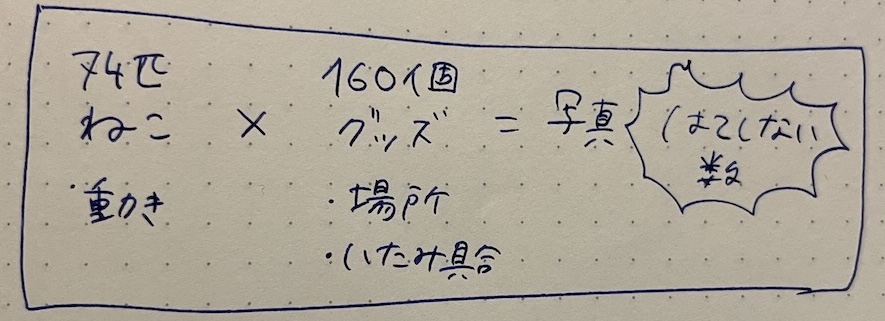 74匹
ねこ
・動き
×
160個
グッズ
・場所
・いたみ具合
=
写真
はてしない
数